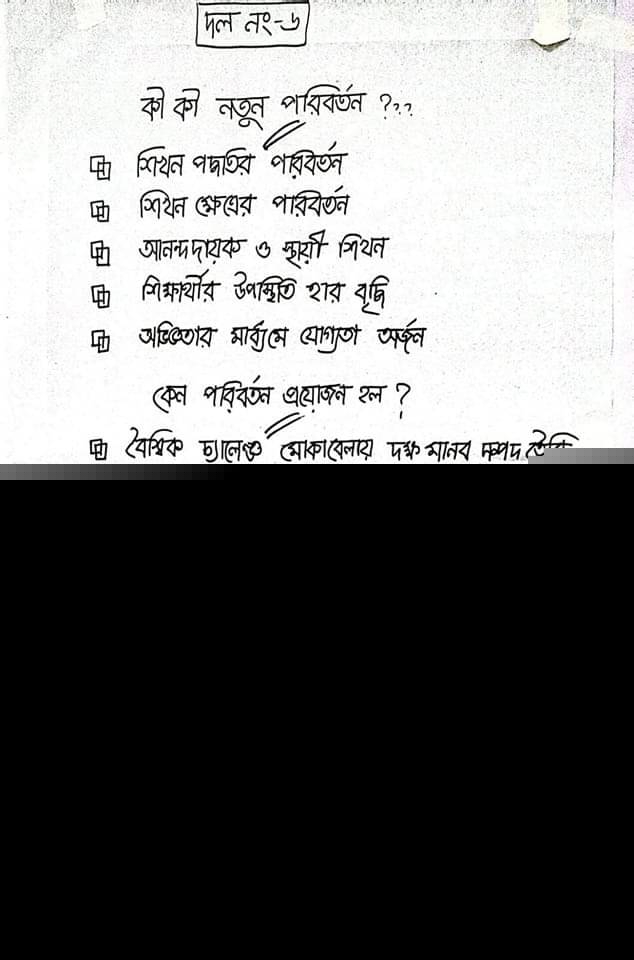 দল নং-৬
কী কী নতুন পরিবর্তন ???
শিখন পদ্ধতির পরিবর্তন
শিখন ক্ষেত্রের পরিবর্তন
আনন্দদায়ক ও স্থায়ী শিখন
শিক্ষার্থীর উপস্থিতি হার বৃদ্ধি
অভিজ্ঞতার মাধ্যমে যোগ্যতা অর্জন
কেন পরিবর্তন প্রয়োজন হল ?
বৈশ্বিক চ্যালেঞ্জ মোকাবেলায় দক্ষ মানব সম্পদ